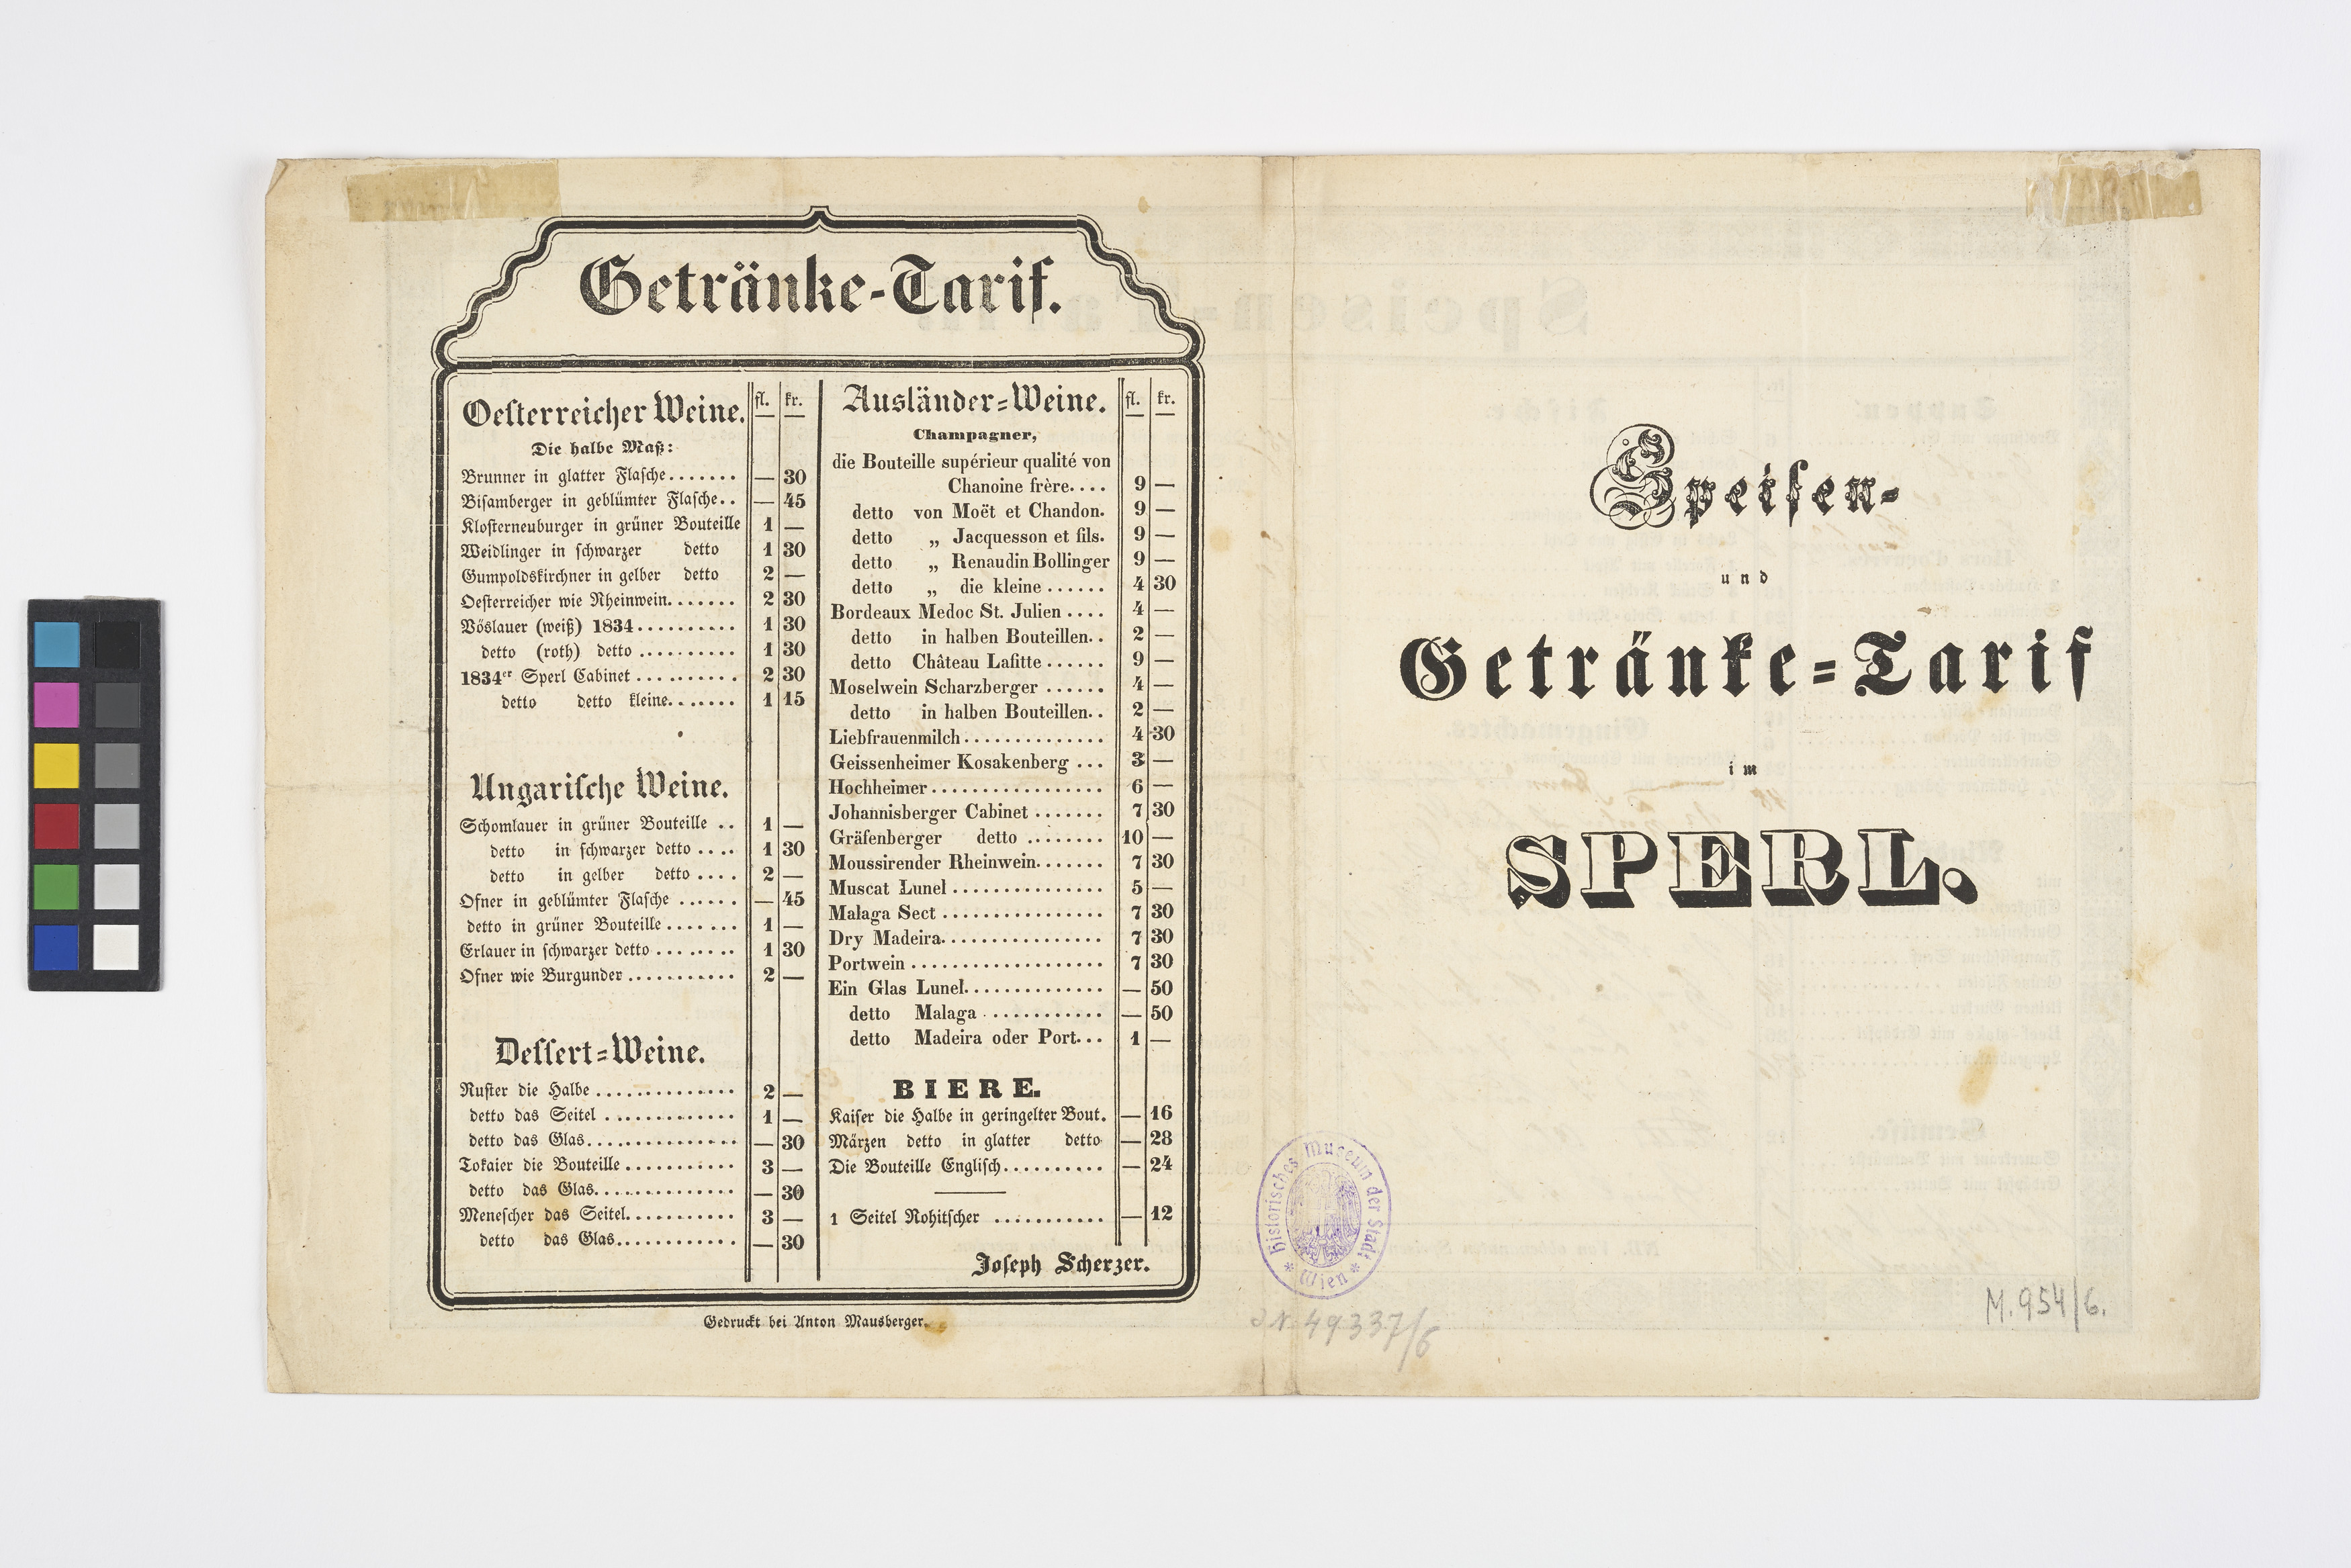 Getränke-Tarif.
Oesterreicher Weine. fl. kr.
Die halbe Maß:
Brunner in glatter Flasche....... — 30
Bisamberger in geblümter Flasche.. — 45
Klosterneuburger in grüner Bouteille 1 —
Weidlinger in schwarzer detto 1 30
Gumpoldskirchner in gelber detto 2 —
Oesterreicher wie Rheinwein....... 2 30
Vöslauer (weiß) 1834.......... 1 30
detto (roth) detto .......... 1 30
1834er Sperl Cabinet .......... 2 30
detto detto kleine....... 1 15
Ungarische Weine.
Schomlauer in grüner Bouteille .. 1 —
detto in schwarzer detto .... 1 30
detto in gelber detto .... 2 —
Ofner in geblümter Flasche ...... — 45
detto in grüner Bouteille....... 1 —
Erlauer in schwarzer detto ........ 1 30
Ofner wie Burgunder ........... 2 —
Dessert=Weine.
Ruster die Halbe .............. 2 —
detto das Seitel ............. 1 —
detto das Glas............... — 30
Tokaier die Bouteille ........... 3 —
detto das Glas.............. — 30
Menescher das Seitel........... 3 —
detto das Glas............ — 30
Ausländer=Weine. fl. kr.
Champagner,
die Bouteille supérieur qualité von
Chanoine frère.... 9 —
detto von Moët et Chandon. 9 —
detto „ Jacquesson et fils. 9 —
detto „ Renaudin Bollinger 9 —
detto „ die kleine ...... 4 30
Bordeaux Medoc St. Julien .... 4 —
detto in halben Bouteillen.. 2 —
detto Château Lafitte ...... 9 —
Moselwein Scharzberger ...... 4 —
detto in halben Bouteillen.. 2 —
Liebfrauenmilch............... 4 30
Geissenheimer Kosakenberg ... 3 —
Hochheimer.................. 6 —
Johannisberger Cabinet ....... 7 30
Gräfenberger detto ........ 10 —
Moussirender Rheinwein....... 7 30
Muscat Lunel ................ 5 —
Malaga Sect ................. 7 30
Dry Madeira................. 7 30
Portwein .................... 7 30
Ein Glas Lunel............... — 50
detto Malaga ............ — 50
detto Madeira oder Port... 1 —
BIERE.
Kaiser die Halbe in geringelter Bout. — 16
Märzen detto in glatter detto — 28
Die Bouteille Englisch.......... — 24
1 Seitel Rohitscher ........... — 12
Joseph Scherzer.
Gedruckt bei Anton Mausberger.
Speisen-
und
Getränke=Tarif
im
SPERL.
Historisches Museum der Stadt
* Wien *
49337/6
M. 954/6.